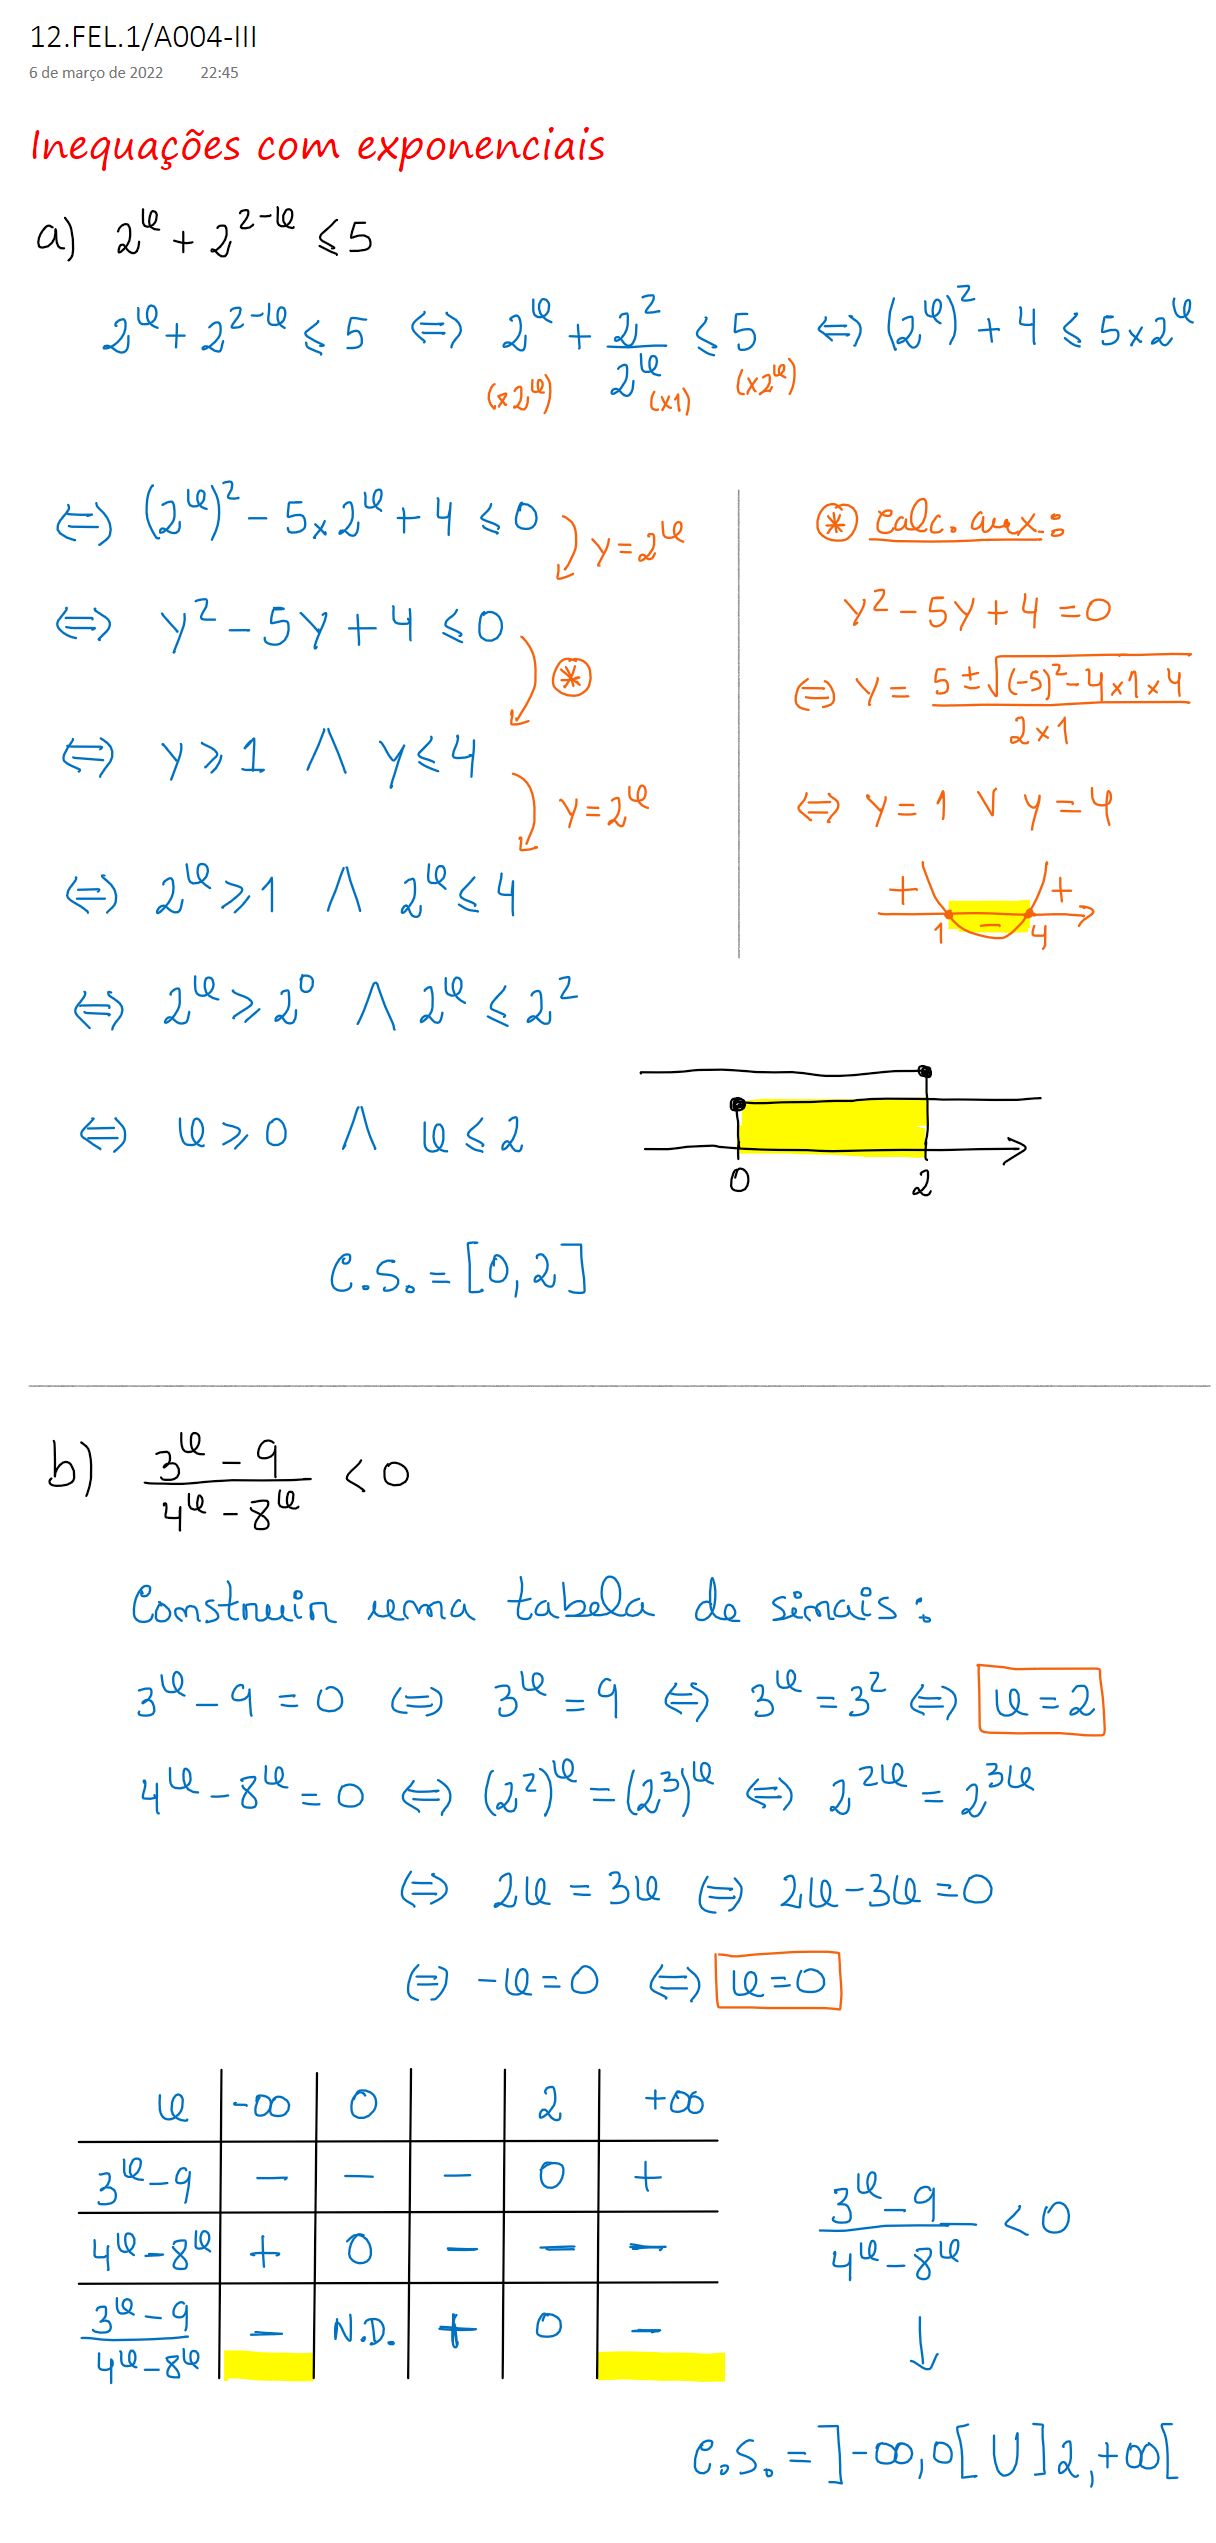 12.FEL.1/A004-III
6 de março de 2022 22:45
Inequações com exponenciais
a) 2^x + 2^(2-x) ⩽ 5
2^x + 2^(2-x) ⩽ 5 ⇔ 2^x + 2^2/2^x ⩽ 5 ⇔ (2^x)^2 + 4 ⩽ 5×2^x
(×2^x) (×1) (×2^x)
⇔ (2^x)^2 - 5×2^x + 4 ⩽ 0
y = 2^x
⇔ y^2 - 5y + 4 ⩽ 0
⊛
⇔ y ⩾ 1 ∧ y ⩽ 4
y = 2^x
⇔ 2^x ⩾ 1 ∧ 2^x ⩽ 4
⇔ 2^x ⩾ 2^0 ∧ 2^x ⩽ 2^2
⇔ x ⩾ 0 ∧ x ⩽ 2
⊛ calc. aux.:
y^2 - 5y + 4 = 0
⇔ y = (5 ± √((-5)^2 - 4×1×4))/(2×1)
⇔ y = 1 ∨ y = 4
+ - +
1 4
0 2
C.S. = [0, 2]
b) (3^x - 9)/(4^x - 8^x) < 0
Construir uma tabela de sinais:
3^x - 9 = 0 ⇔ 3^x = 9 ⇔ 3^x = 3^2 ⇔ x = 2
4^x - 8^x = 0 ⇔ (2^2)^x = (2^3)^x ⇔ 2^(2x) = 2^(3x)
⇔ 2x = 3x ⇔ 2x - 3x = 0
⇔ -x = 0 ⇔ x = 0
x -∞ 0 2 +∞
3^x - 9 - - - 0 +
4^x - 8^x + 0 - - -
(3^x - 9)/(4^x - 8^x) - N.D. + 0 -
(3^x - 9)/(4^x - 8^x) < 0
↓
C.S. = ]-∞, 0[ ∪ ]2, +∞[